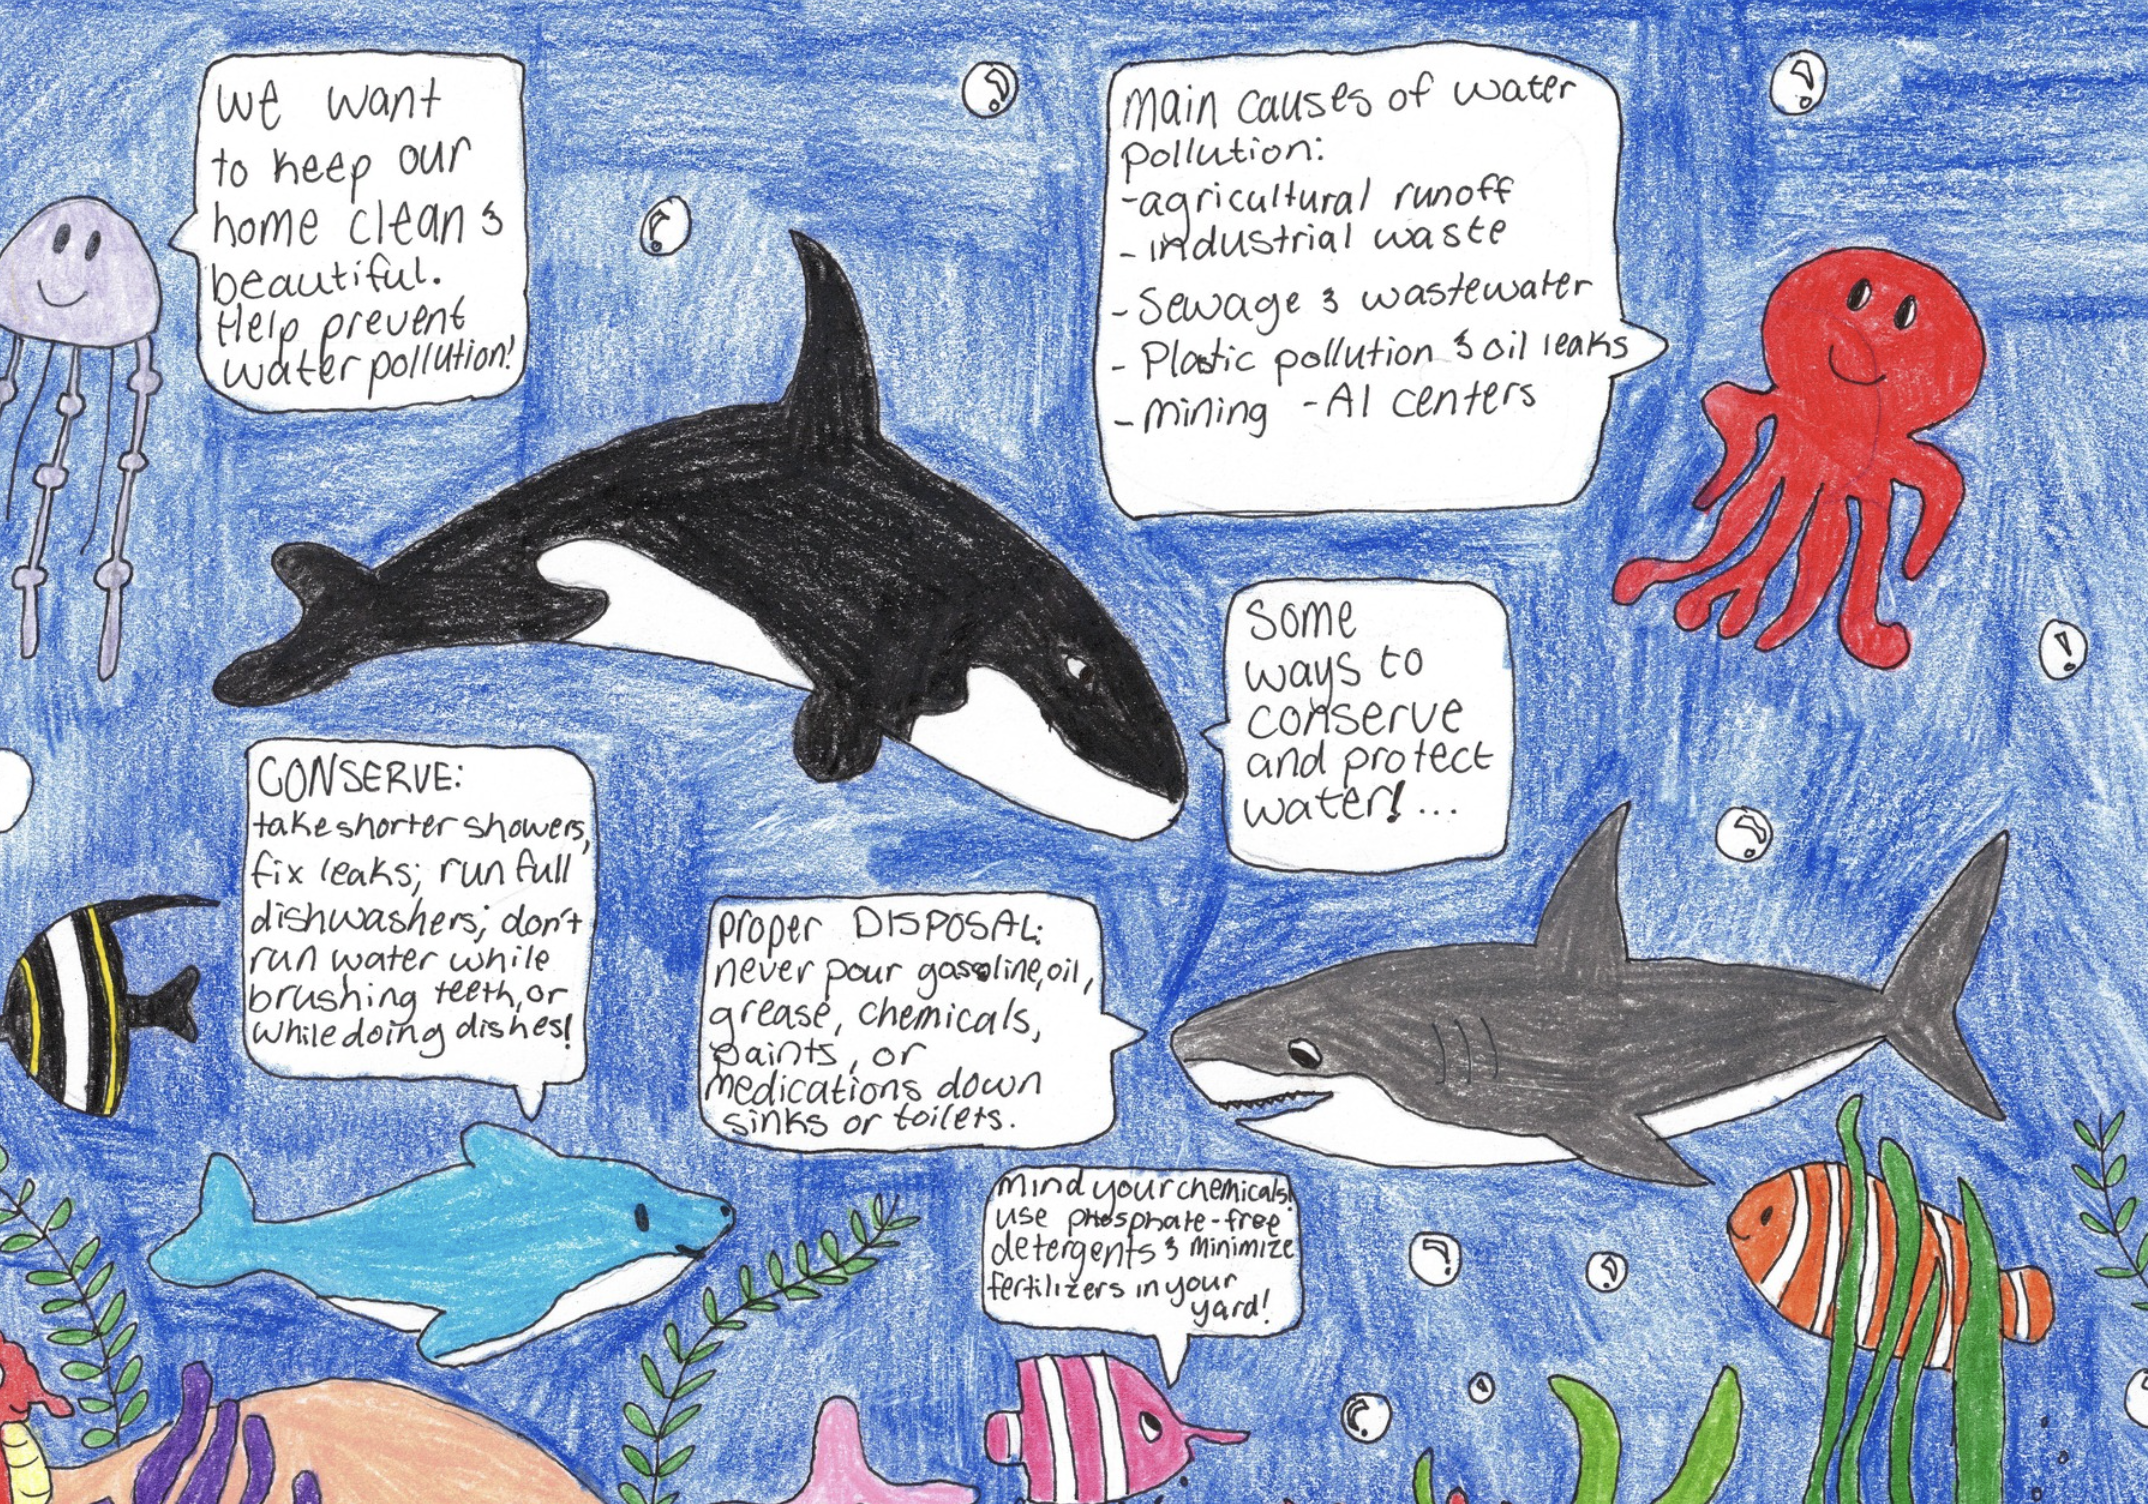 we want
to keep our
home clean &
beautiful.
Help prevent
water pollution!
main causes of water
pollution:
-agricultural runoff
- industrial waste
- Sewage & wastewater
- Plastic pollution & oil leaks
- mining - AI centers
Some
ways to
conserve
and protect
water! ...
CONSERVE:
take shorter showers,
fix leaks; run full
dishwashers; don't
run water while
brushing teeth, or
while doing dishes!
proper DISPOSAL:
never pour gasoline, oil,
grease, chemicals,
paints, or
medications down
sinks or toilets.
mind your chemicals!
use phosphate-free
detergents & minimize
fertilizers in your
yard!